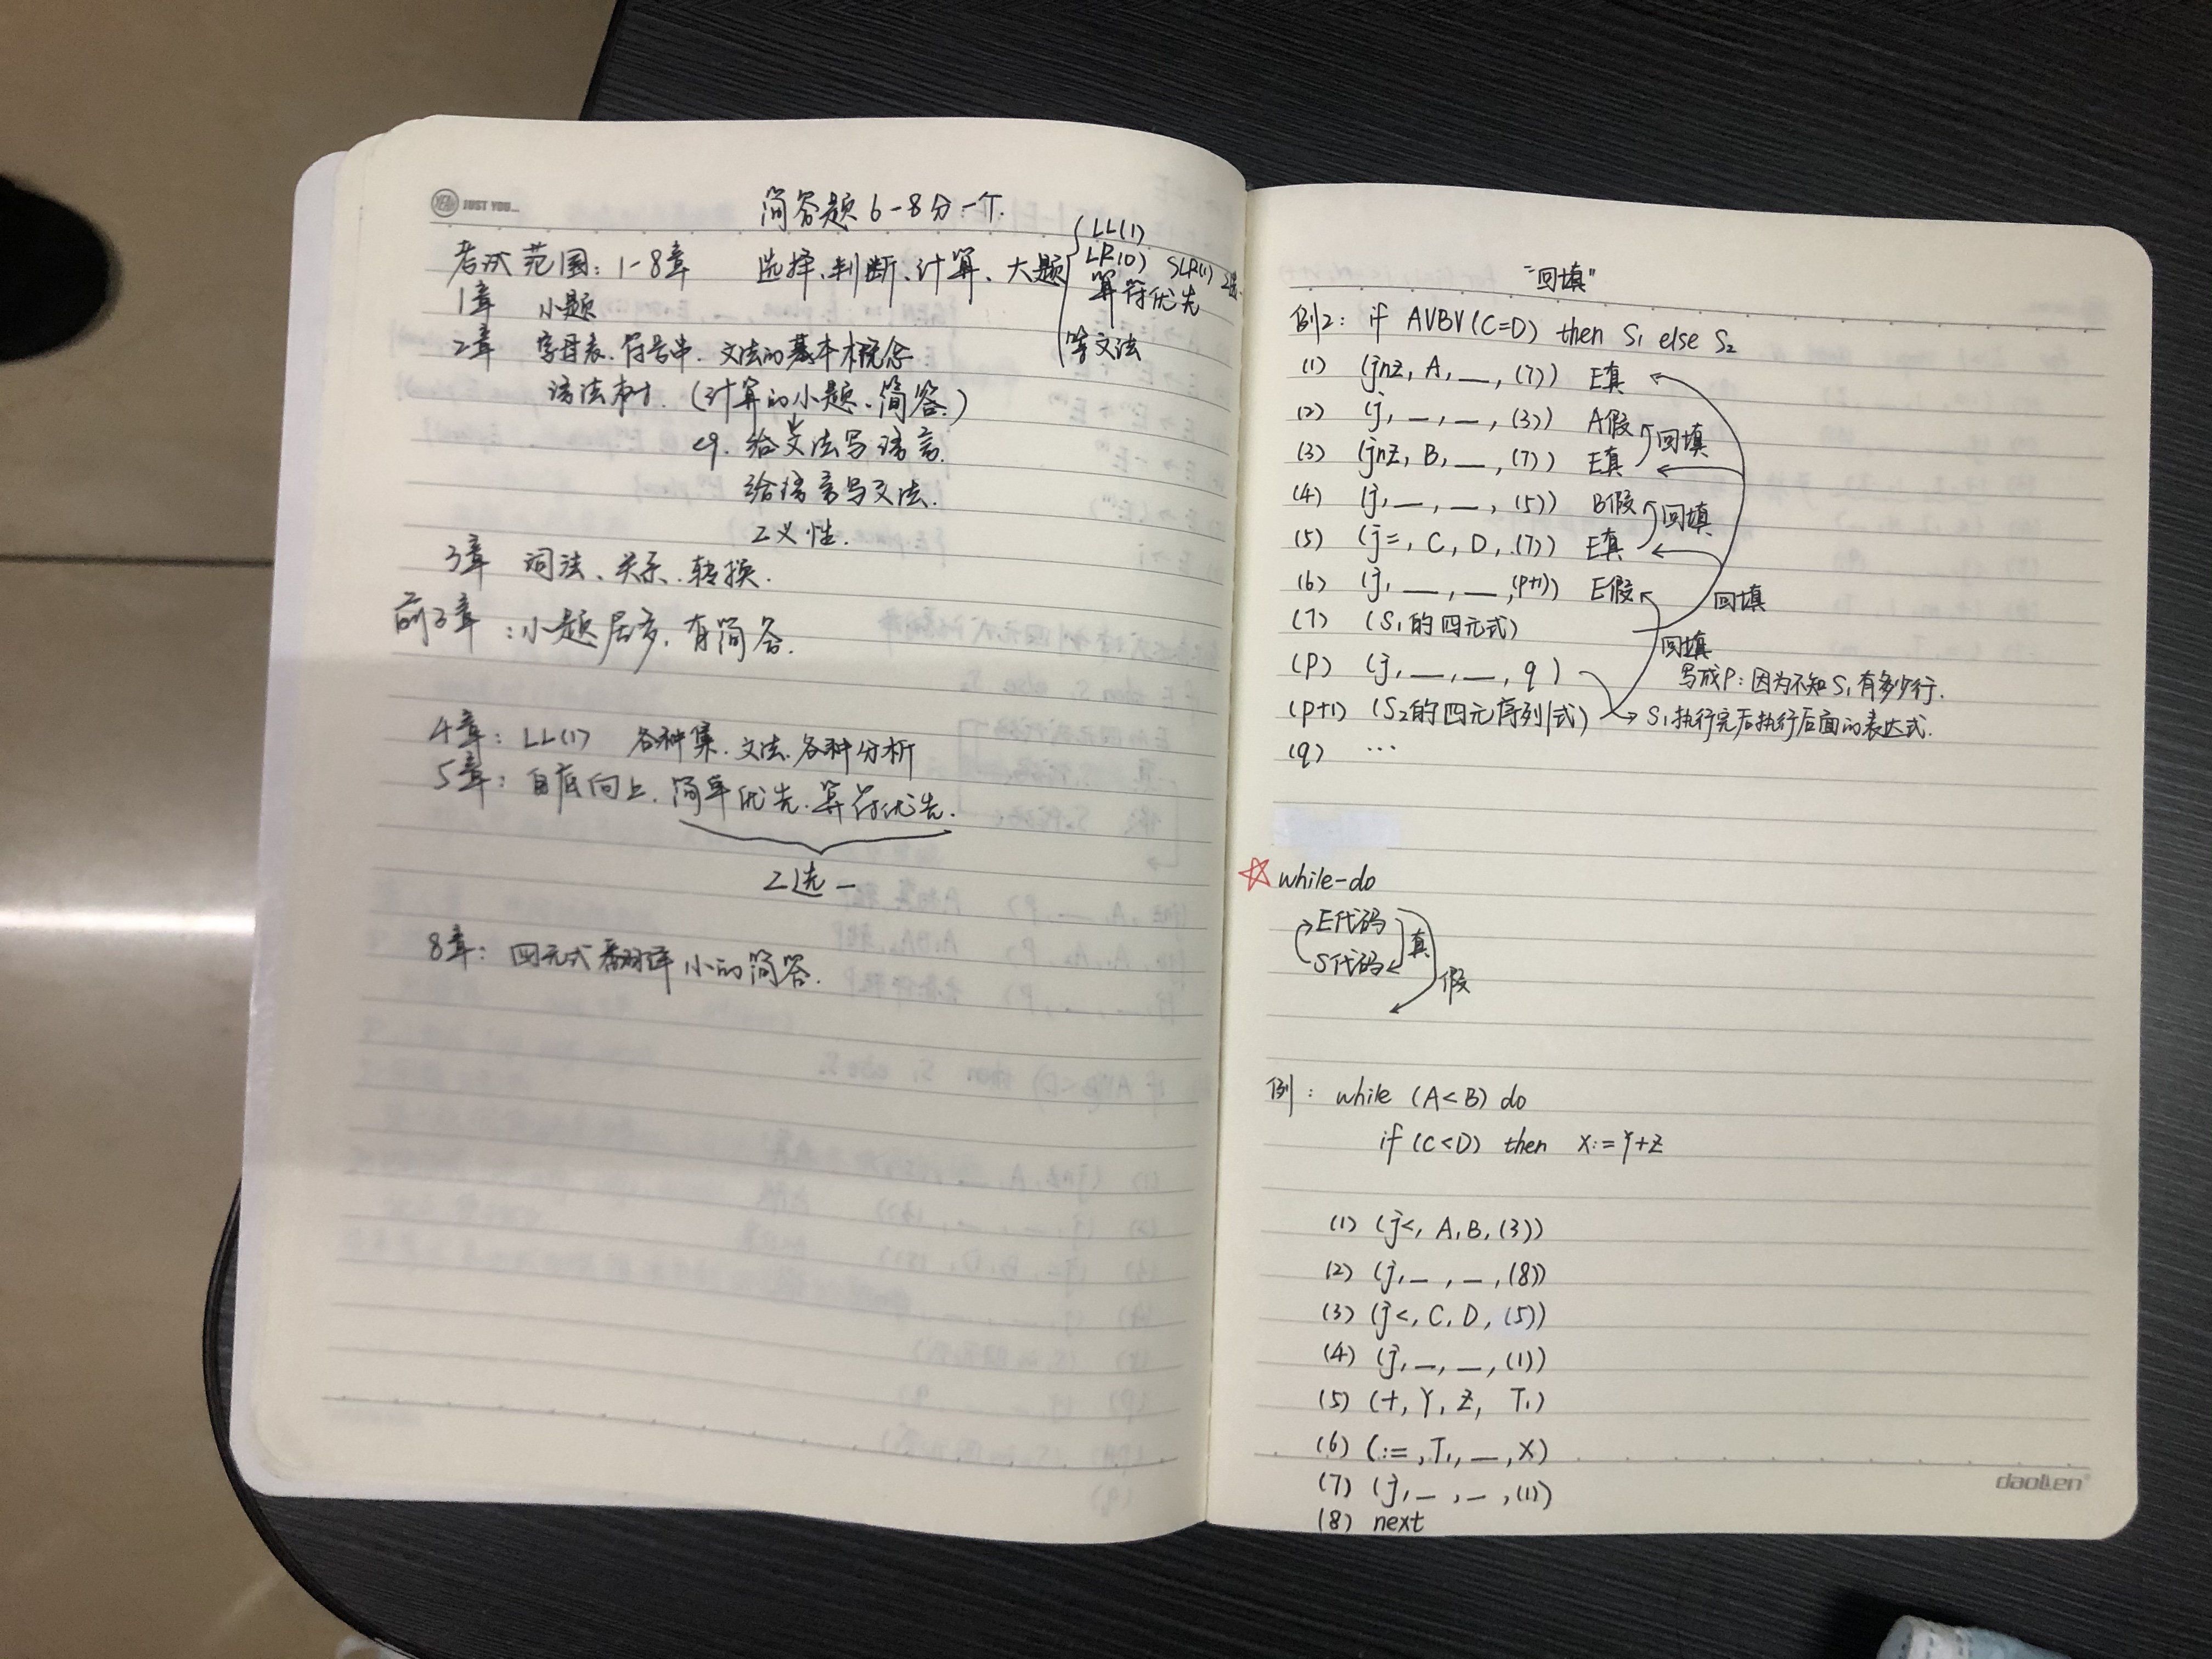 JUST YOU...
简答题 6-8分一个.
考试范围: 1-8章 选择、判断、计算、大题
LL(1)
LR(0) SLR(1)
算符优先
写文法
1章 小题
2章 字母表、符号串、文法的基本概念
语法树. (计算的小题、简答.)
eg. 给文法写语言
给语言写文法.
2义性.
3章 词法、关系、转换.
前3章 : 小题居多, 有简答.
4章: LL(1) 各种集、文法、各种分析
5章: 自底向上. 简单优先. 算符优先.
2选一
8章: 四元式 翻译 小的简答.
"回填"
例2: if A∨B∨(C=D) then S₁ else S₂
(1) (jnz, A, —, (7)) E真
(2) (j, —, —, (3)) A假 回填
(3) (jnz, B, —, (7)) E真
(4) (j, —, —, (5)) B假 回填
(5) (j=, C, D, (7)) E真
(6) (j, —, —, (p+1)) E假 回填
(7) (S₁的四元式) 回填
(p) (j, —, —, q) 写成P: 因为不知S₁有多少行.
(p+1) (S₂的四元序列式) → S₁执行完后执行后面的表达式.
(q) ...
☆ while-do
E代码 真
S代码 假
例: while (A<B) do
if (C<D) then X:=Y+Z
(1) (j<, A, B, (3))
(2) (j, —, —, (8))
(3) (j<, C, D, (5))
(4) (j, —, —, (1))
(5) (+, Y, Z, T₁)
(6) (:=, T₁, —, X)
(7) (j, —, —, (1))
(8) next